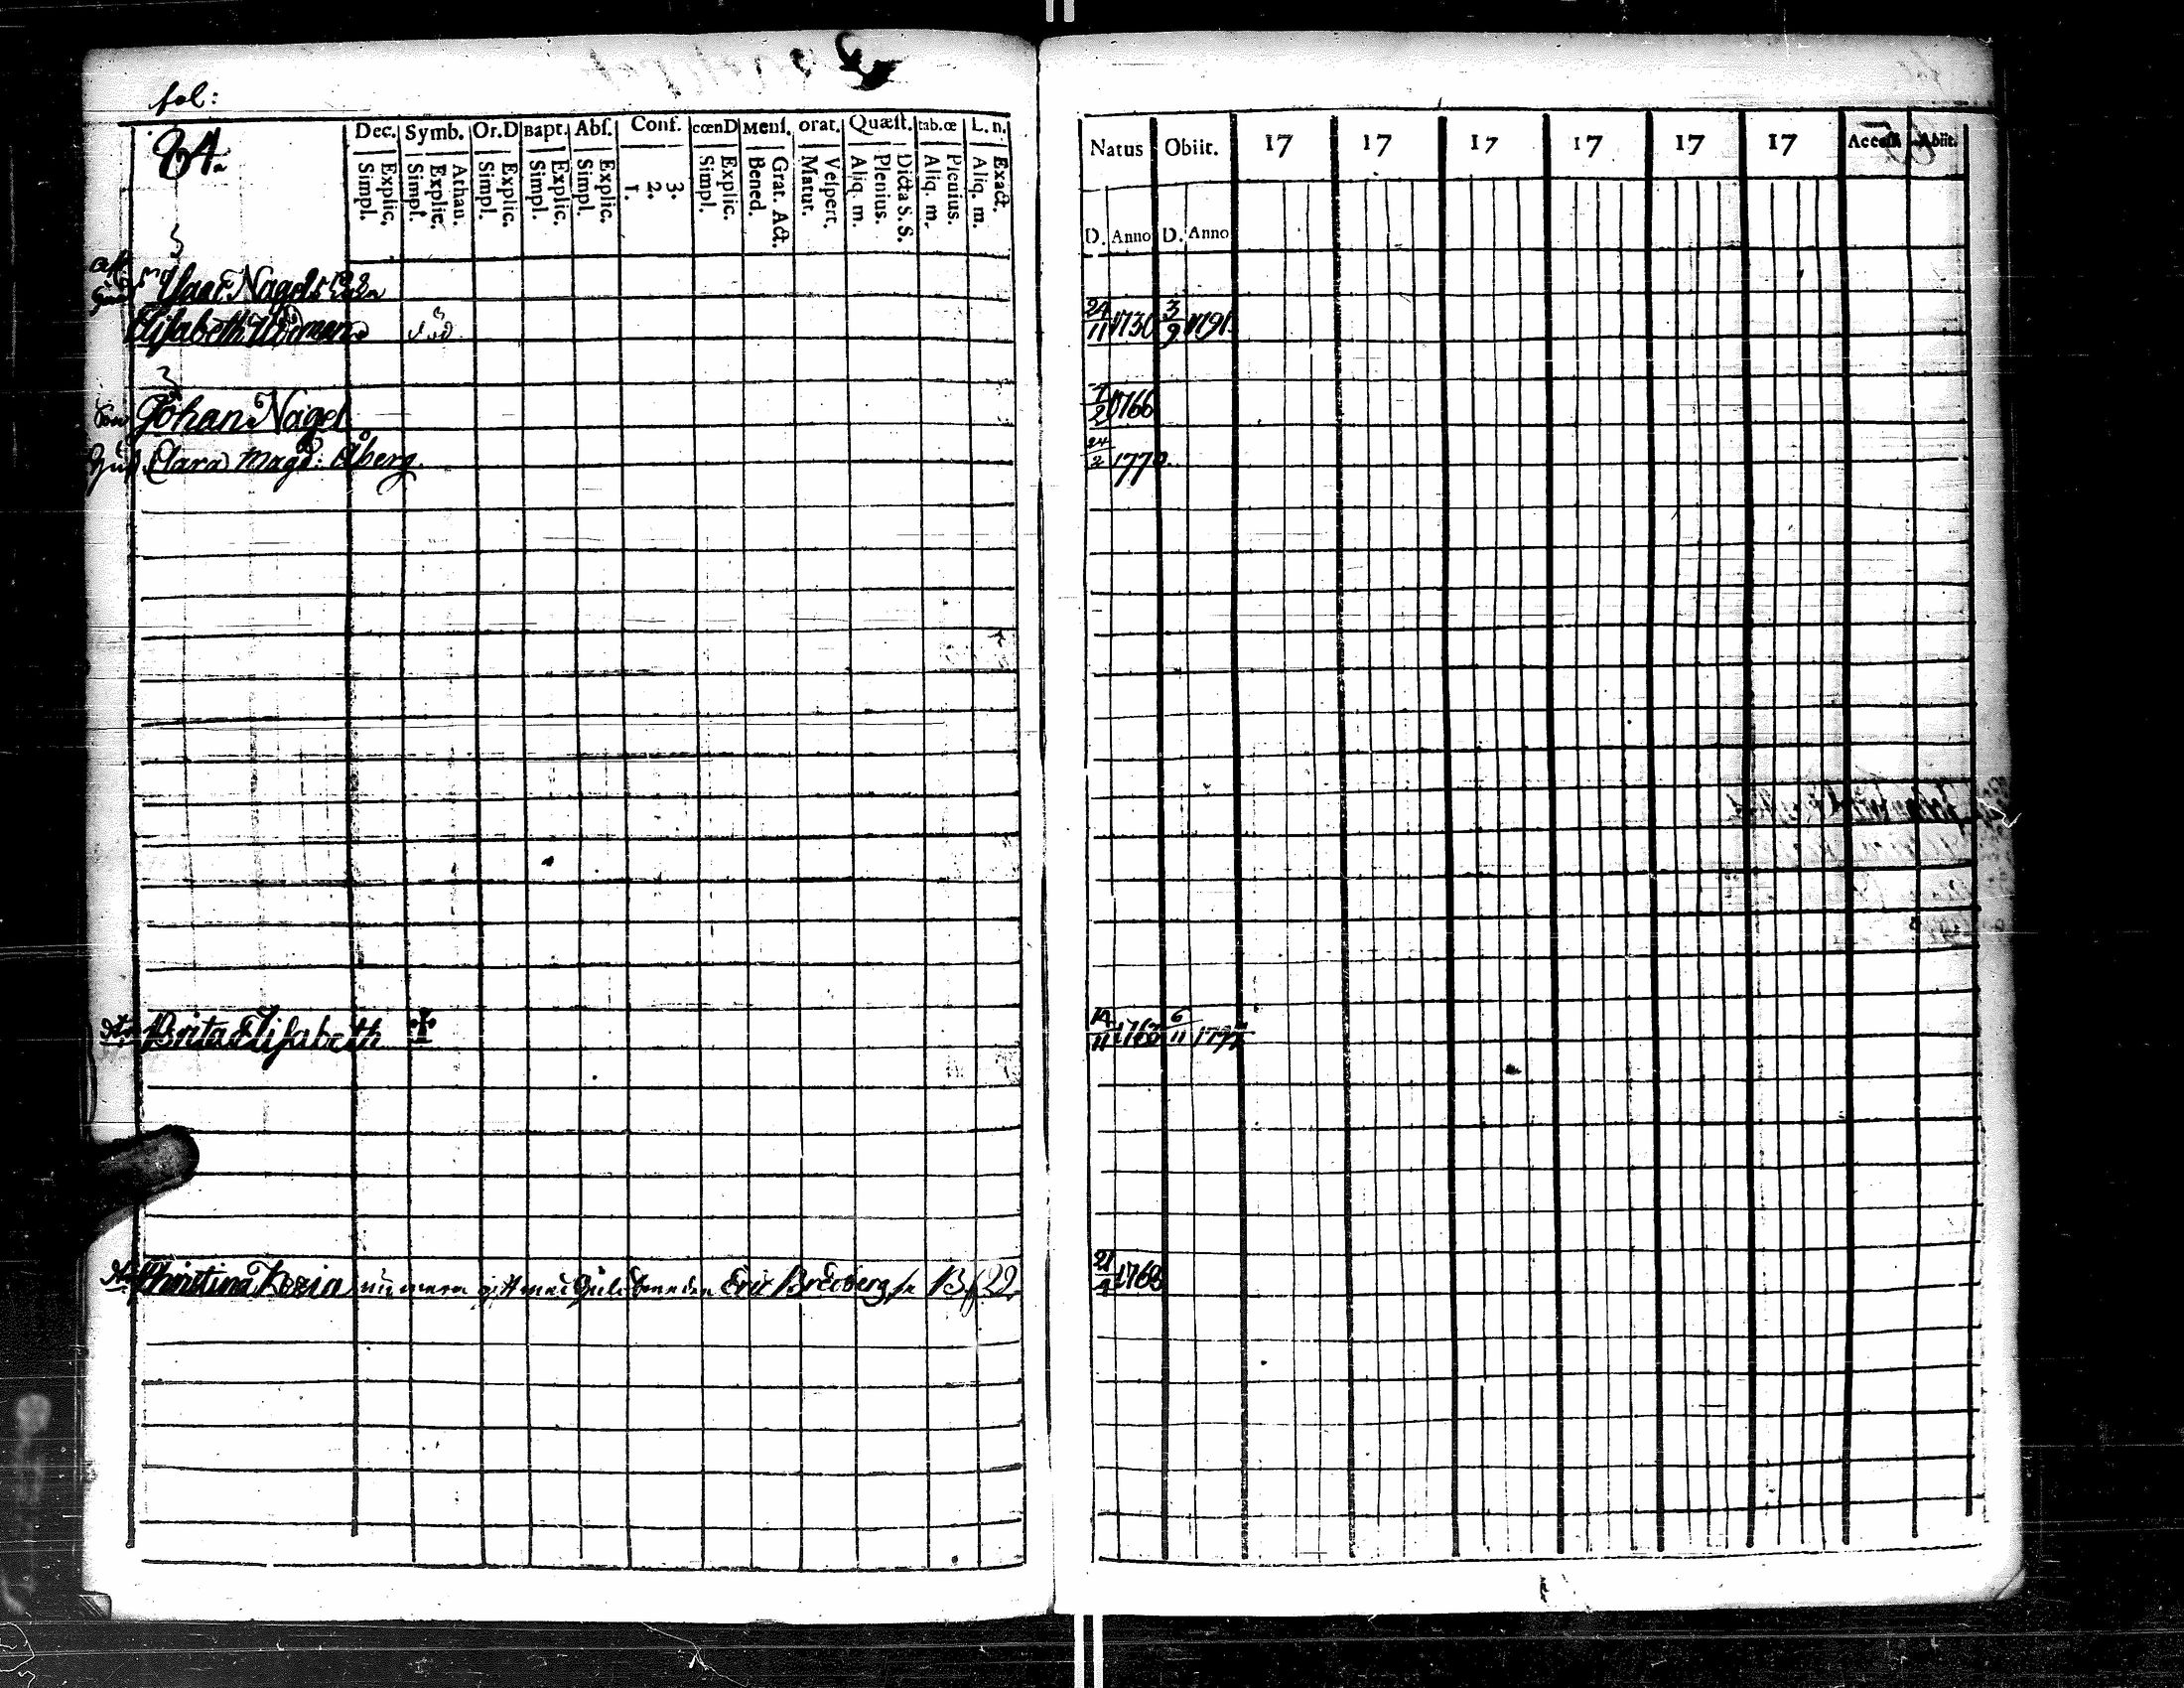 fol:
84.
Dec. Symb. Or.D Bapt. Abs. Conf. cœnD Mens. orat. Quæst. tab.œ L. n.
Explic. Simpl. Athan. Explic. Simpl. Explic. Simpl. Explic. Simpl. Explic. Simpl. 3. 2. 1. Explic. Simpl. Grat. Act. Bened. Vespert. Matut. Dicta S. S. Plenius. Aliq. m. Plenius. Aliq. m. Exact. Aliq. m.
Natus Obiit. 17 17 17 17 17 17 Accessit Abiit.
D. Anno D. Anno
Isaac Nagels Enka
Elisabeth död 24/11 1730 3/9 1791.
Son Johan Nagel 1766
Hust Clara Magd: Åberg 24/2 1770.
Brita Elisabeth 14/11 1763 6/11
Christina numera gift med Eric Bredberg 21/4 1768